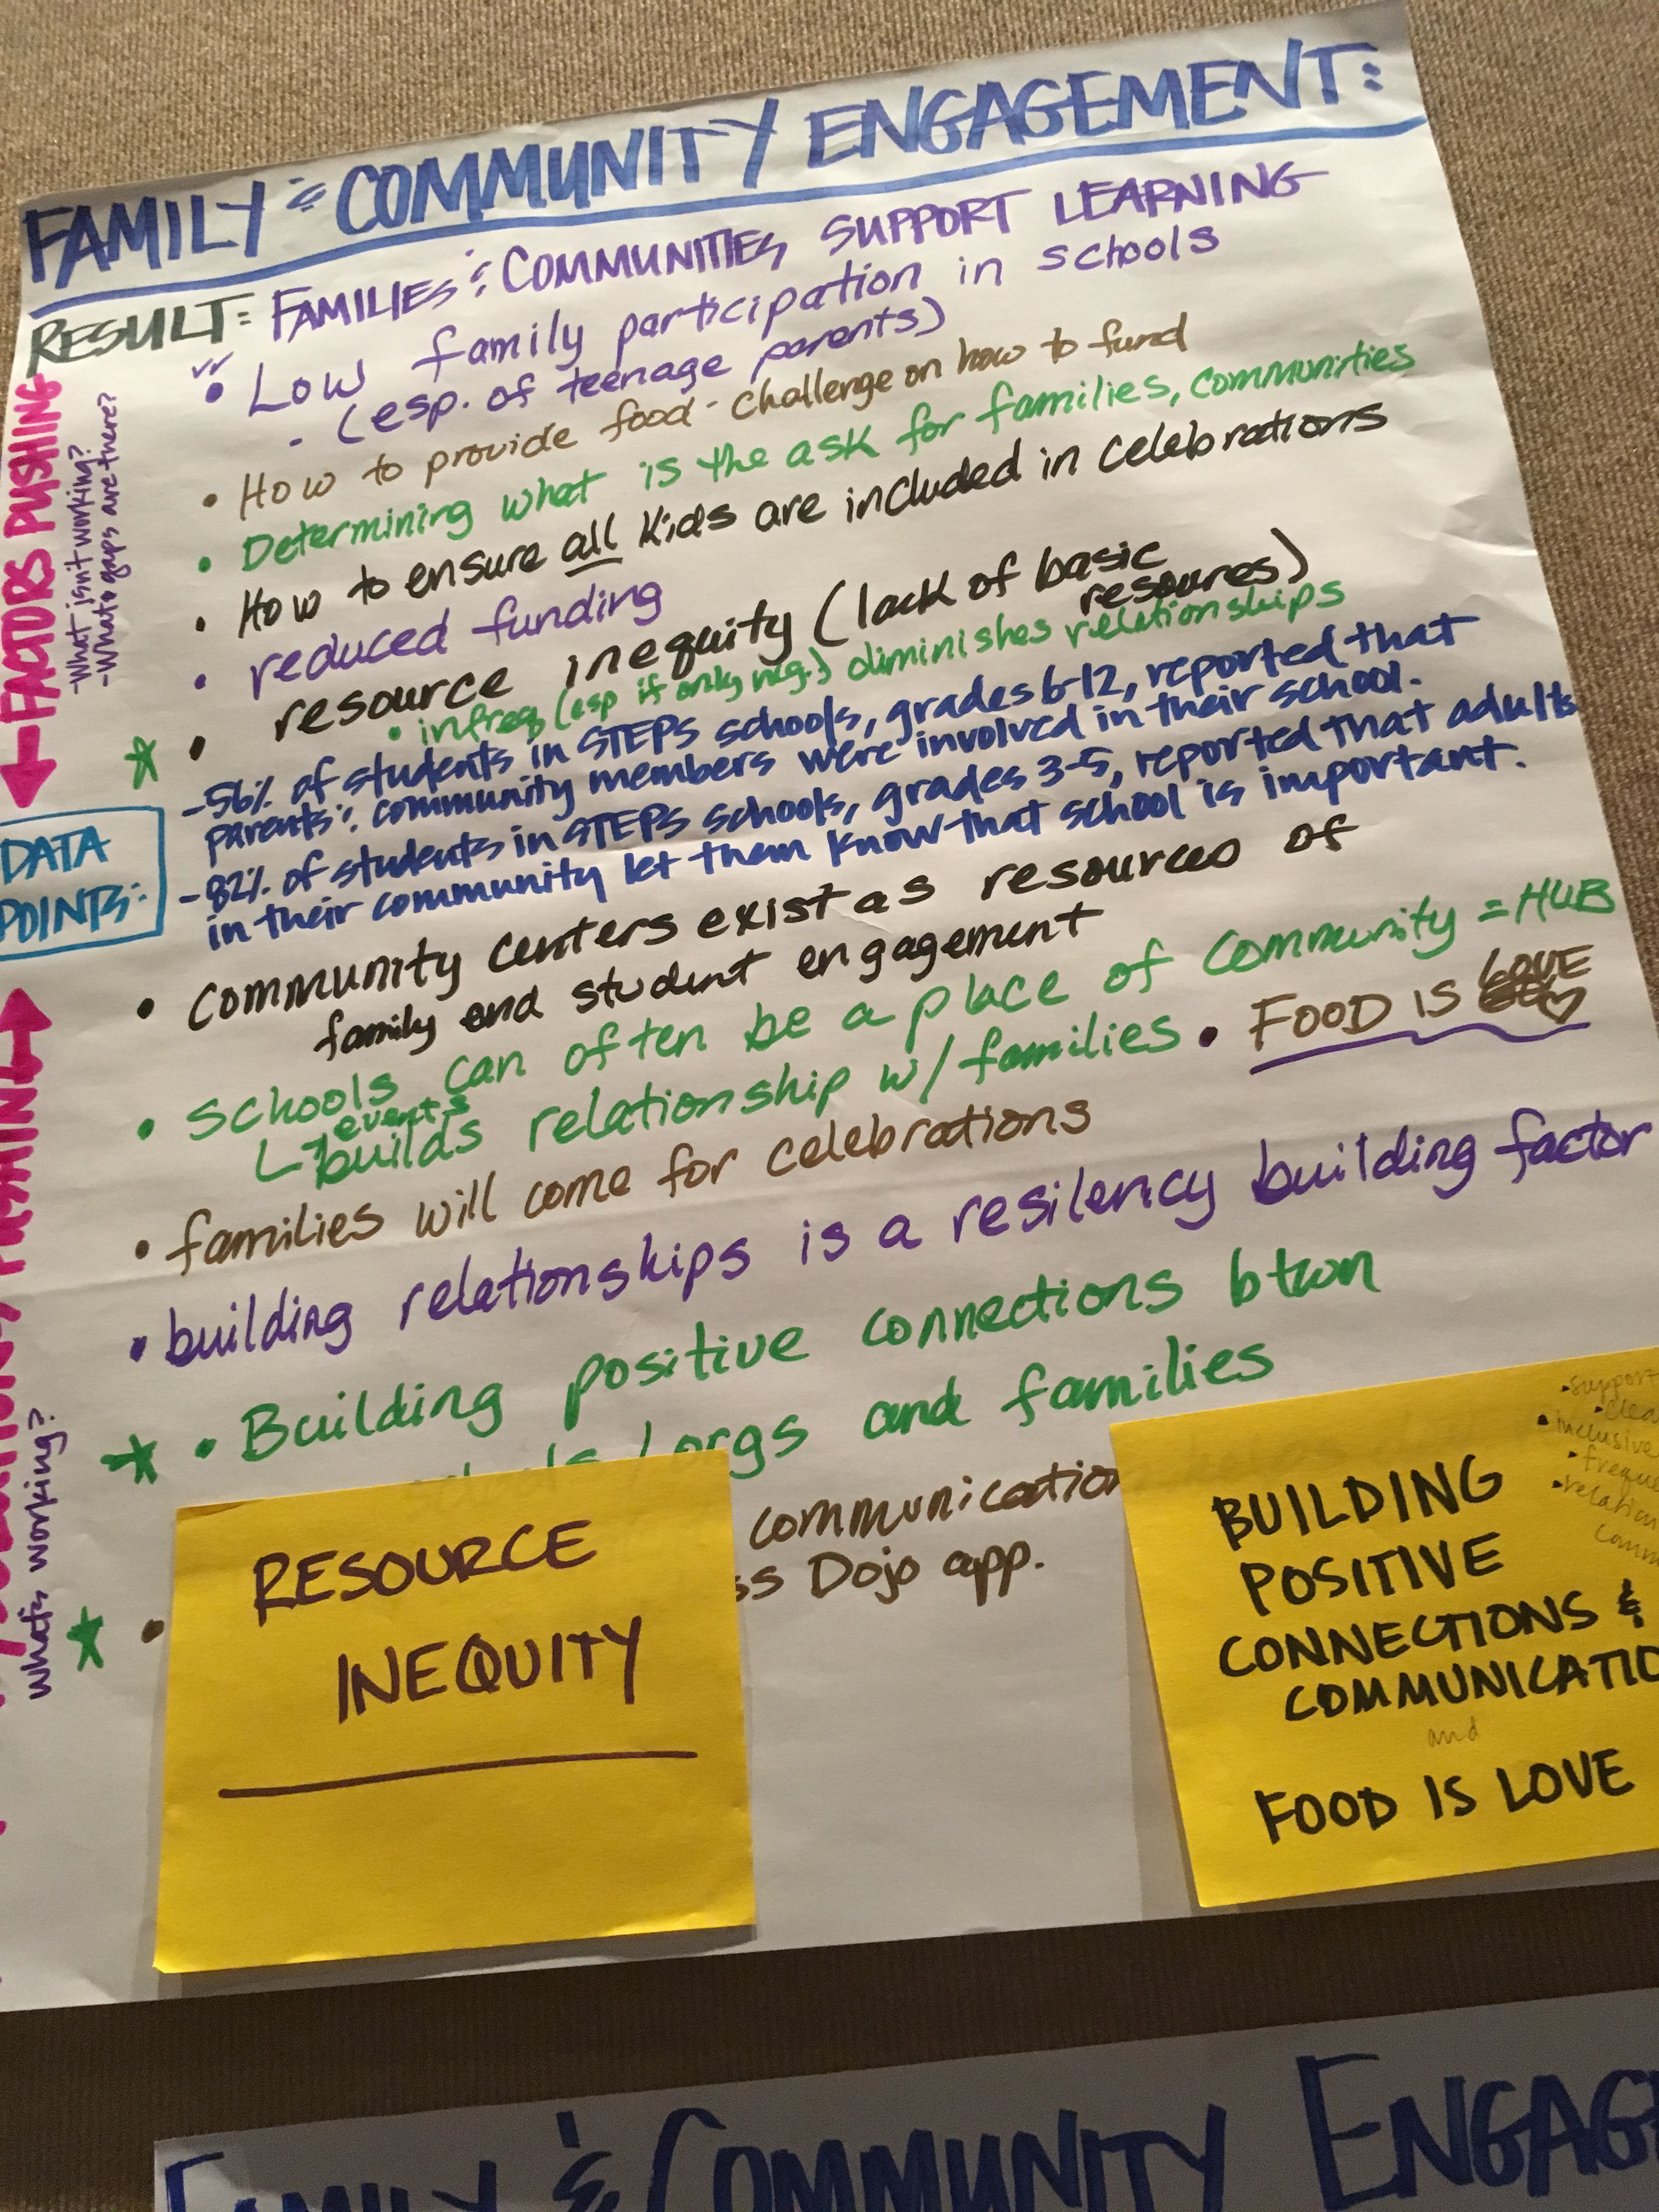 FAMILY & COMMUNITY ENGAGEMENT:
RESULT: FAMILIES & COMMUNITIES SUPPORT LEARNING
FACTORS PUSHING
-What isn't working?
-What gaps are there?
• Low family participation in schools
- (esp. of teenage parents)
• How to provide food - challenge on how to fund
• Determining what is the ask for families, communities
• How to ensure all kids are included in celebrations
• reduced funding
• resource inequity (lack of basic
resources)
• infreq (esp if only neg.) diminishes relationships
DATA
POINTS:
-56% of students in STEPS schools, grades 6-12, reported that
parents & community members were involved in their school.
-82% of students in STEPS schools, grades 3-5, reported that adults
in their community let them know that school is important.
PUSHING
What's working?
• Community centers exist as resources of
family and student engagement
• Schools can often be a place of community = HUB
events
builds relationship w/ families • FOOD IS LOVE
• families will come for celebrations
• building relationships is a resilency building factor
• Building positive connections btwn
/orgs and families
communication
Dojo app.
RESOURCE
INEQUITY
• support
• inclusive
BUILDING
POSITIVE
CONNECTIONS &
COMMUNICATIO
and
FOOD IS LOVE
FAMILY & COMMUNITY ENGAG